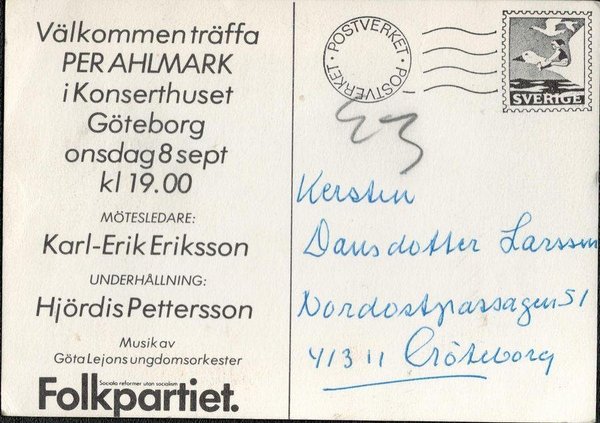 Välkommen träffa
PER AHLMARK
i Konserthuset
Göteborg
onsdag 8 sept
kl 19.00
MÖTESLEDARE:
Karl-Erik Eriksson
UNDERHÅLLNING:
Hjördis Pettersson
Musik av
Göta Lejons ungdomsorkester
Sociala reformer utan socialism
Folkpartiet.
POSTVERKET · POSTVERKET ·
SVERIGE
Kersten
Dansdotter Larsson
Nordostpassagen 51
413 11 Göteborg